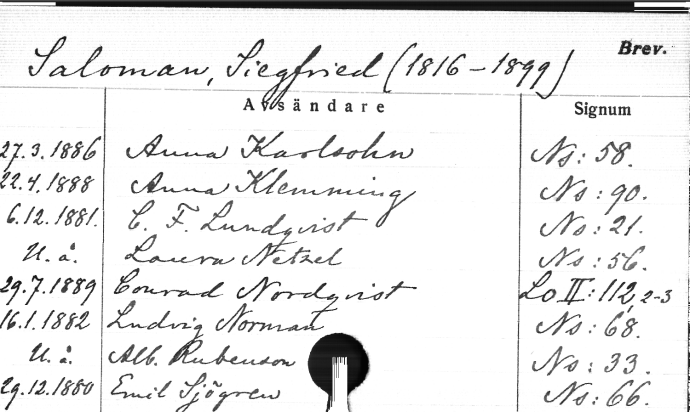 Brev.
Saloman, Siegfried (1816-1899)
Avsändare Signum
27.3.1886 Anna Karlsohn Ns: 58.
22.4.1888 Anna Klemming Ns: 90.
6.12.1881. C. F. Lundqvist Ns: 21.
U. å. Laura Netzel Ns: 56.
29.7.1889 Conrad Nordqvist Lo II: 112, 2-3
16.1.1882 Ludvig Norman Ns: 68.
U. å. Alb. Rubenson Ns: 33.
29.12.1880 Emil Sjögren Ns: 66.